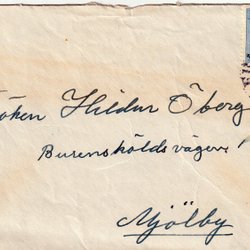 öken Hildur Öberg
Burensköldsvägen
Mjölby